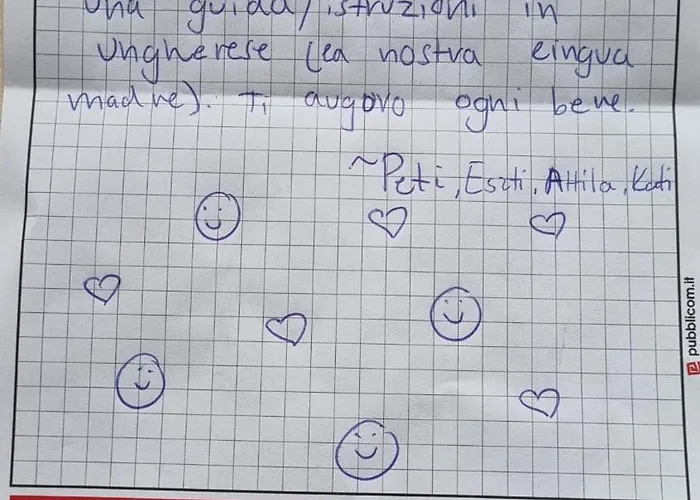 una guida/istruzioni in
Ungherese (la nostra lingua
madre). Ti auguro ogni bene.
~Peti, Eszti, Attila, Kati
pubblicom.it